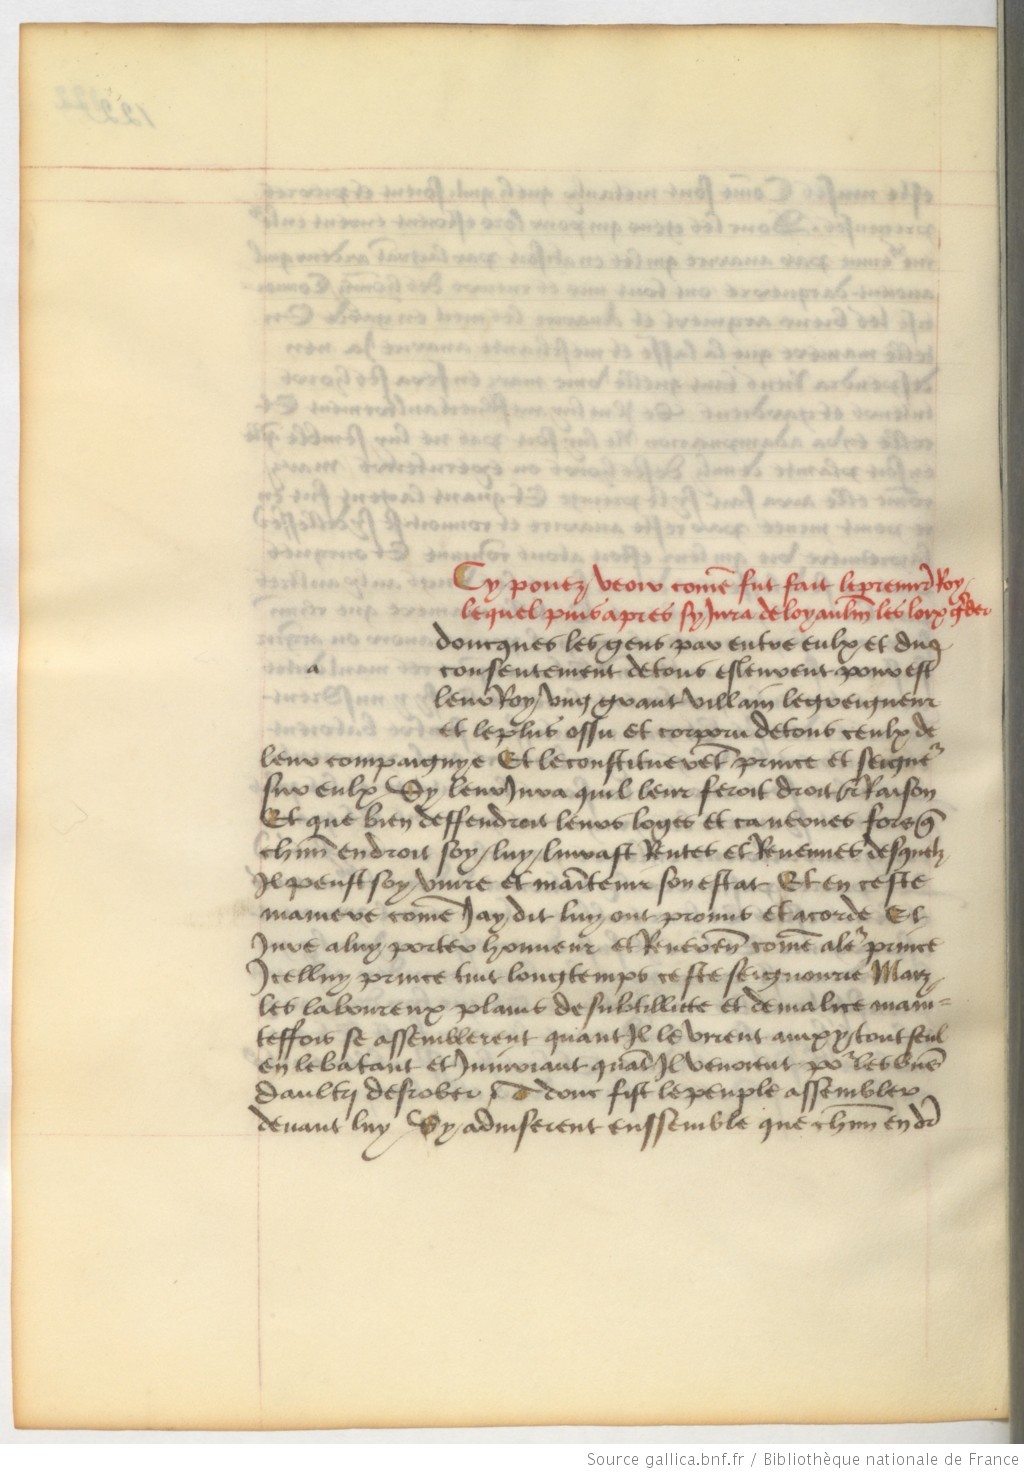 Cy povez veoir comẽ fut fait le premier Roy
lequel puis apres sy Jura de loyaulm̃ les loix gder
doncques les gens par entre eulx et dug
a
consentement de tous esleurent pour est
leur Roy vng grant villain le greigneur
et le plus ossu et corporu de tous ceulx de
leur compaignye Et le constituerẽt prince et seignẽr
sur eulx Sy leur Jura quil leur feroit droit & Raison
Et que bien deffendroit leurs loges et cauernes fors q̃
chũn endroit soy luy liurast Rentes et Reuenues desquelz
Il peust soy viure et maĩtenir son estat Et en ceste
maniere comẽ Jay dit luy ont promis et acorde Et
Jure a luy porter honneur et Reuerẽn comẽ a leᵉ prince
Icelluy prince tint longtemps ceste seignourie Maiz
les laboureux plains de subtillitte et de malice main=
teffois se assemblerent quant Il le virent tout seul
en le batant et Iniuriant quãt Il venoient pᵒ les biẽs
daultry desrober donc fist le peuple assembler
deuant luy Sy aduiserent enssemble que chũn en dr̃
Source gallica.bnf.fr / Bibliothèque nationale de France